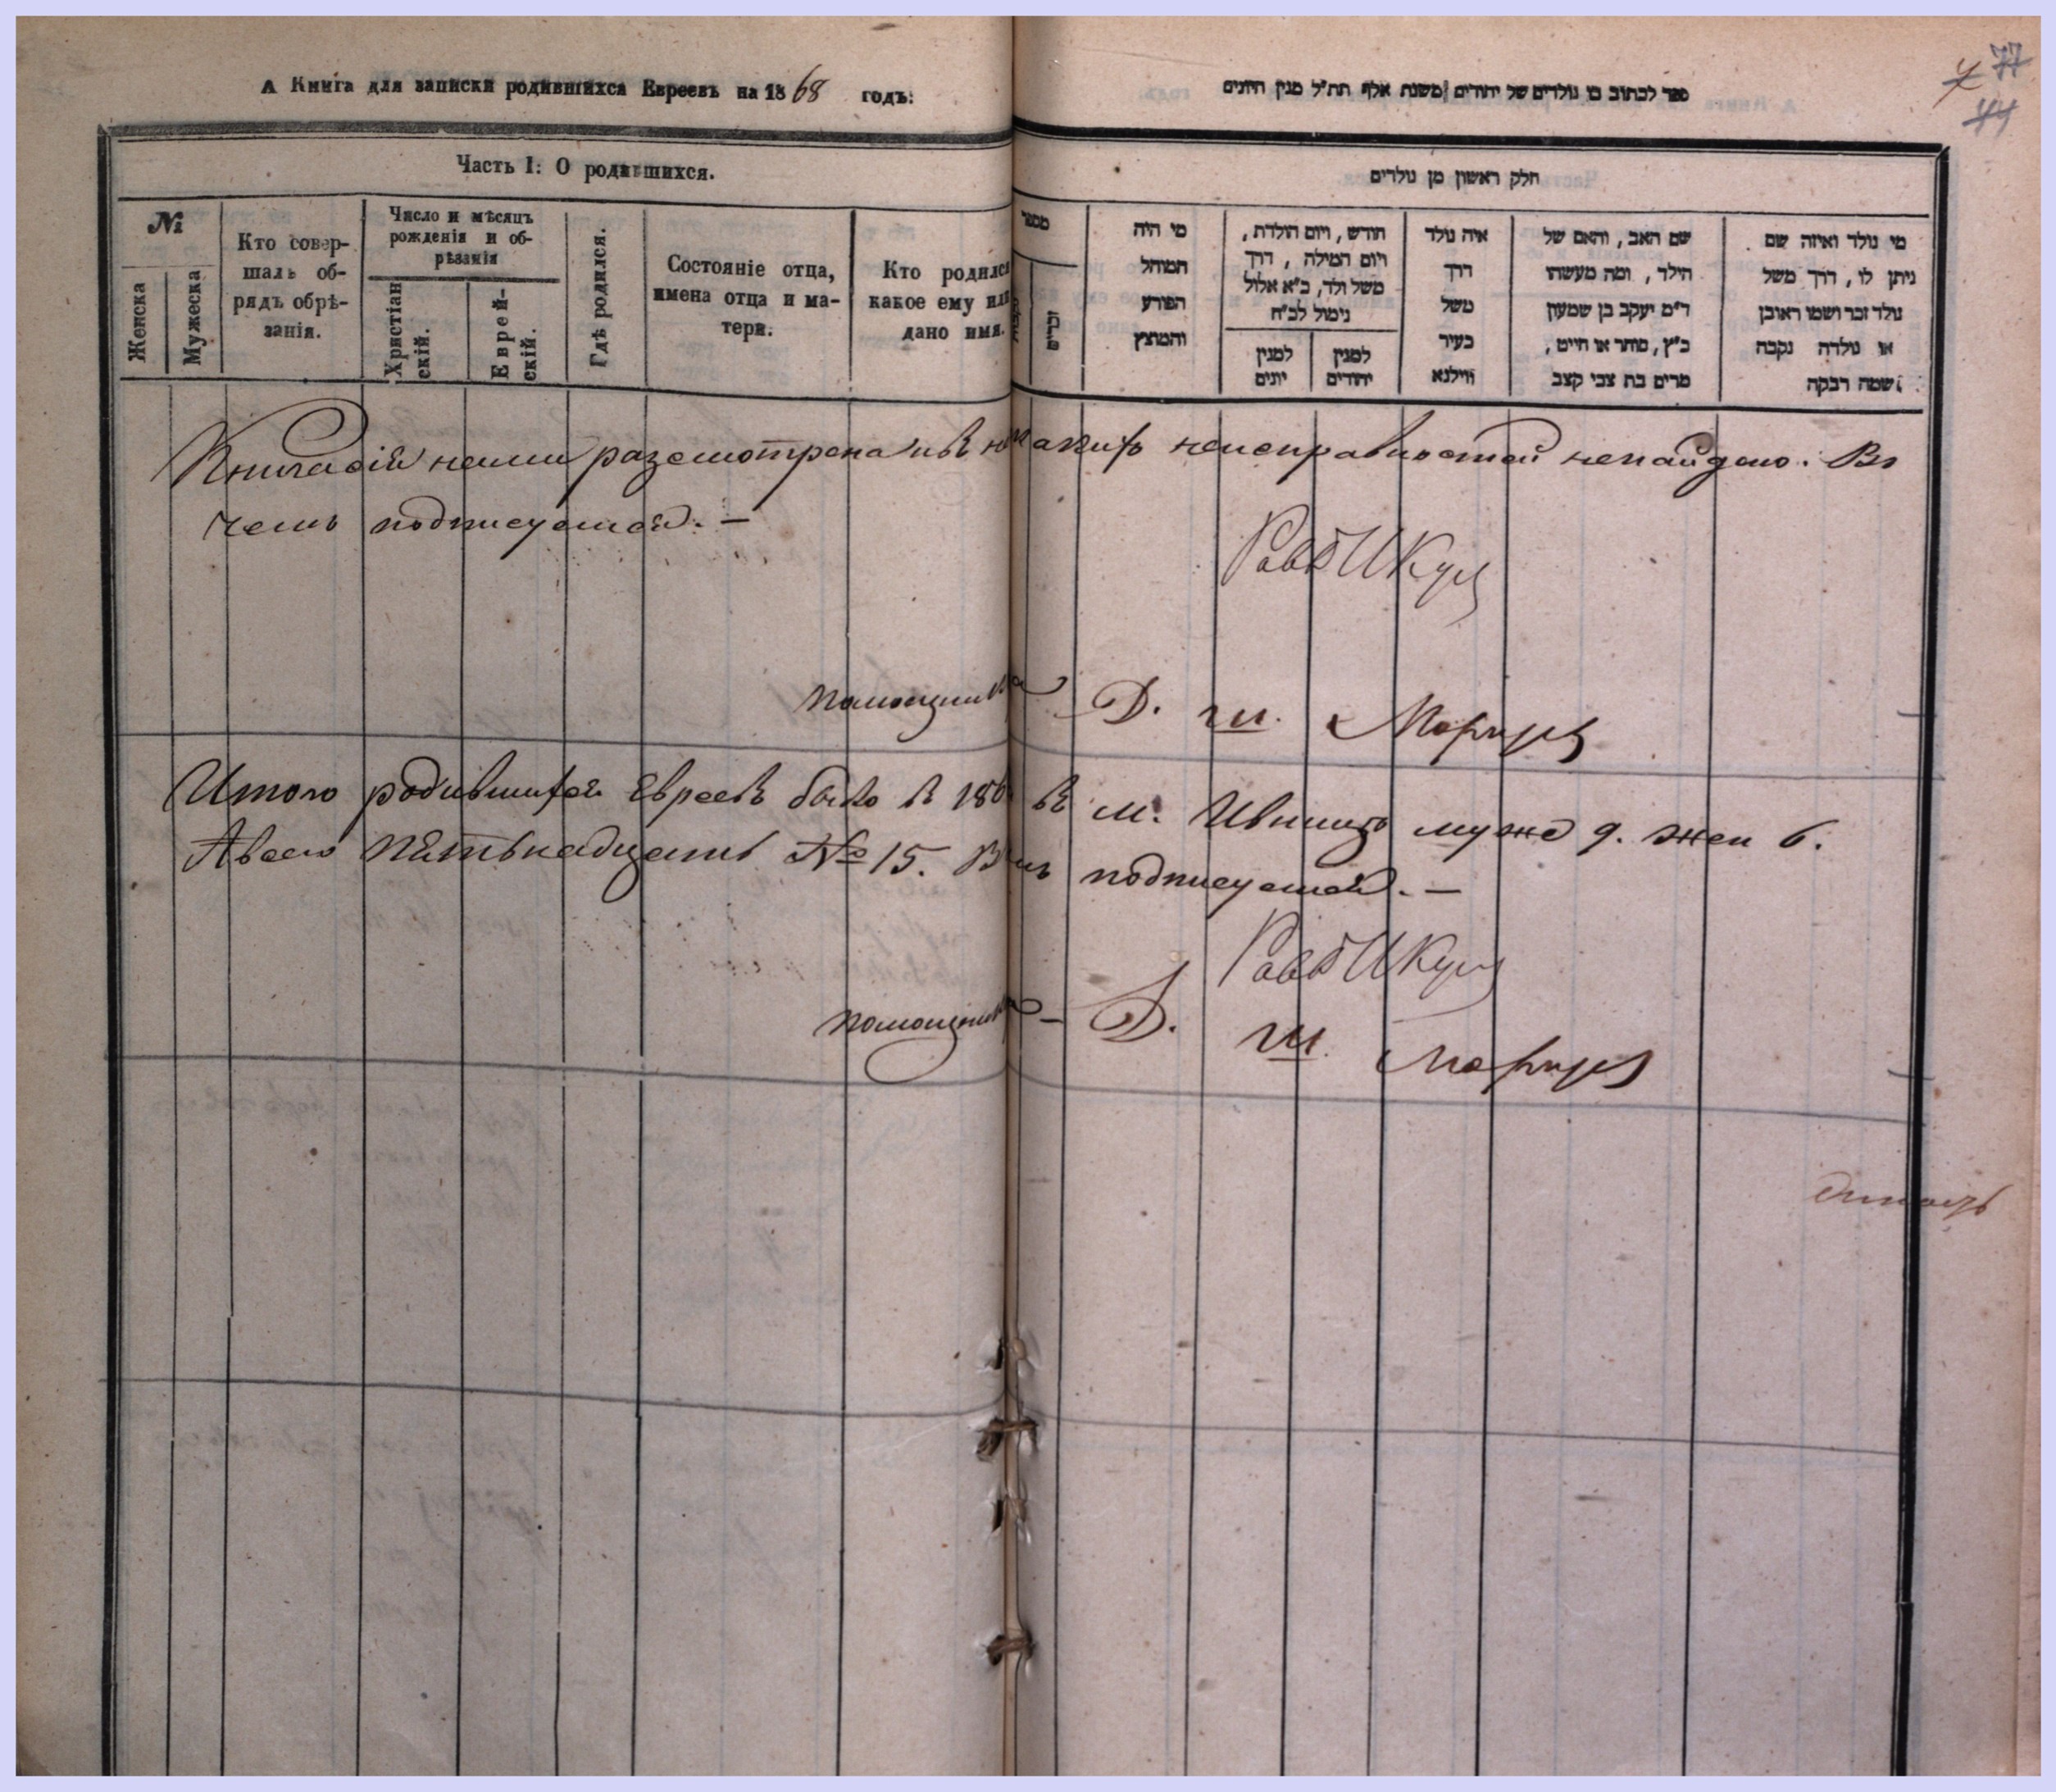 А Книга для записки родившихся Евреевъ на 1868 годъ:
Часть I: О родившихся.
№
Женска
Мужеска
Кто совер-
шалъ об-
рядъ обрѣ-
занія.
Число и мѣсяцъ
рожденія и об-
рѣзанія
Христіан
скій.
Еврей-
скій.
Гдѣ родился.
Состояніе отца,
имена отца и ма-
тери.
Кто родился
какое ему или
дано имя.
ספר לכתוב בו נולדים של יהודים משנת אלף תת״ל מנין היונים
77
44
חלק ראשון מן נולדים
מספר
זכרים
מי היה
המוהל
הפורע
והמוצץ
חודש, ויום הולדת,
ויום המילה, דרך
משל ולד, כ״א אלול
נימול לכ״ח
למנין
יהודים
למנין
יונים
איה נולד
דרך
משל
בעיר
ווילנא
שם האב, והאם של
הילד, ומה מעשהו
ד״מ יעקב בן שמעון
כ״ץ, סוחר או חייט,
מרים בת צבי קצב
מי נולד ואיזה שם
ניתן לו, דרך משל
נולד זכר ושמו ראובן
או נולדה נקבה
שמה רבקה
Книга сія нами разсмотрена и в никакихъ неисправностей ненайдено. Въ
чемъ подписуемся. —
Равв
помощника Д. Ш.
Итого родившихся Евреевъ было в 186 въ м. Ивницъ муже 9. жен 6.
А всего пѣтьнадцать № 15. В чмъ подписуемся. —
Равв
помощника — Д. Ш.